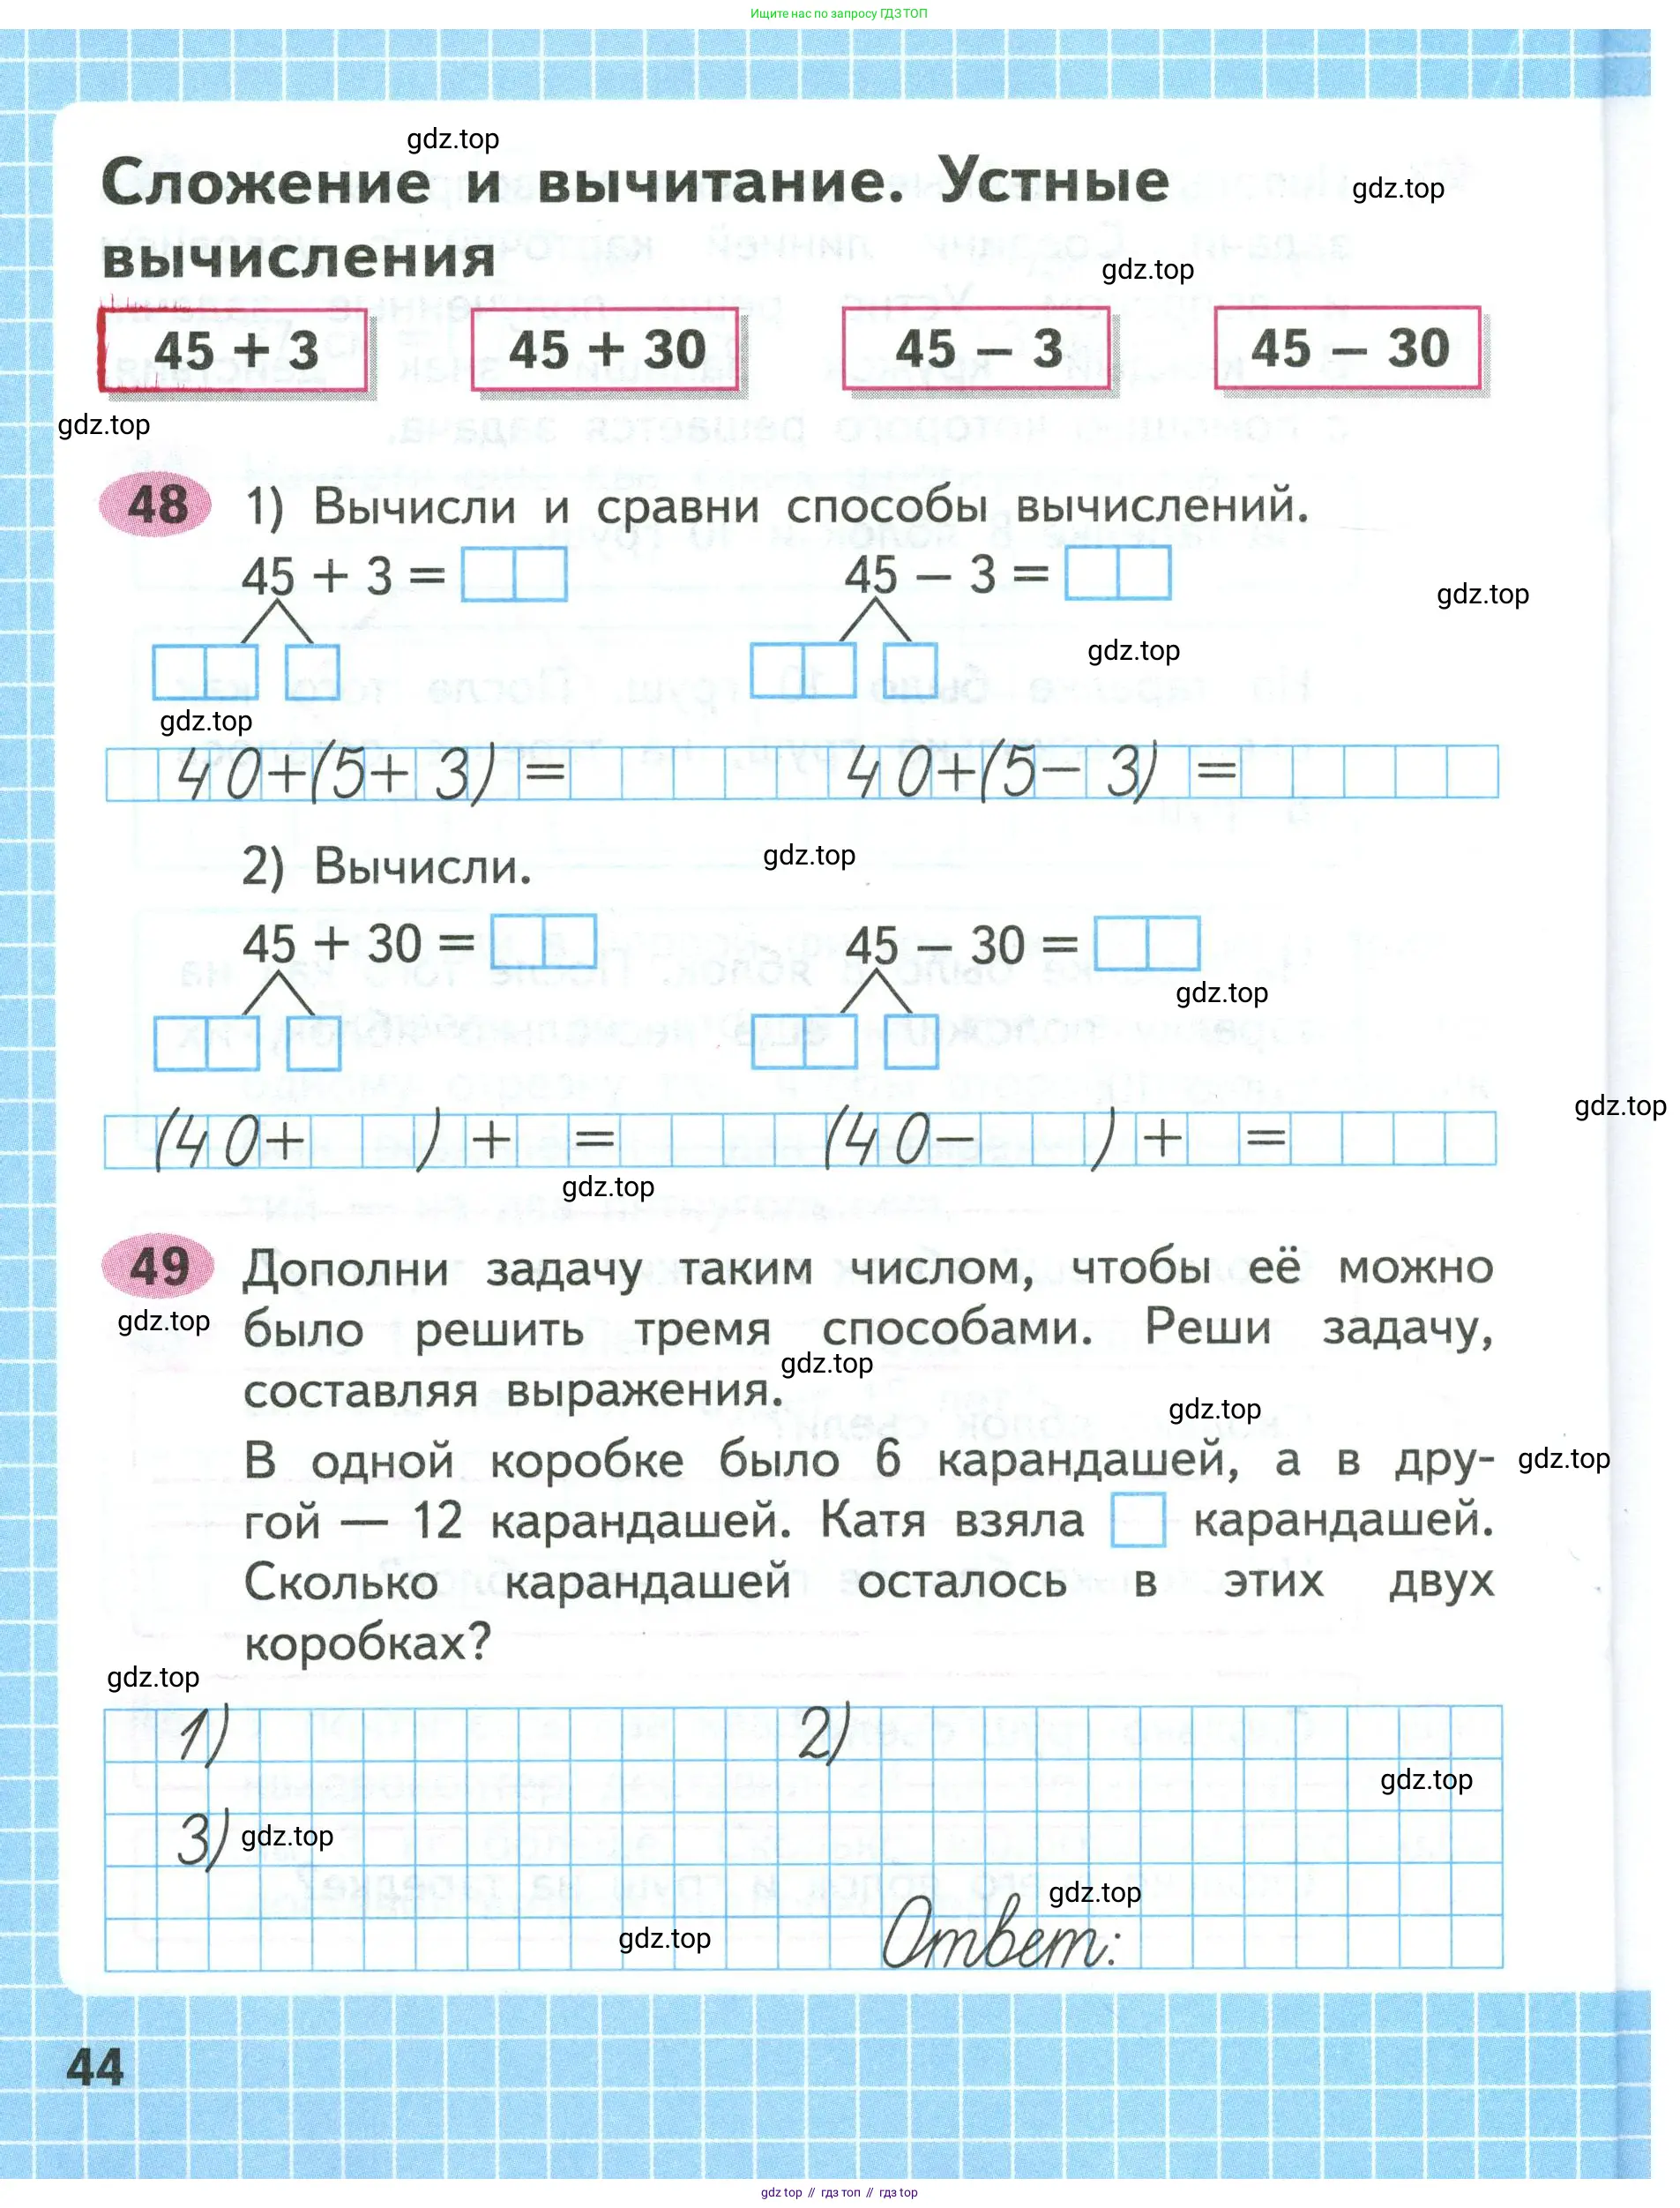 Ищите нас по запросу ГДЗ ТОП
gdz.top
Сложение и вычитание. Устные
gdz.top
вычисления
gdz.top
45 + 3
45 + 30
45 − 3
45 − 30
gdz.top
48 1) Вычисли и сравни способы вычислений.
45 + 3 = 45 − 3 =
gdz.top
gdz.top
gdz.top
40+(5+3)= 40+(5−3)=
2) Вычисли.
gdz.top
45 + 30 = 45 − 30 =
gdz.top
gdz.top
(40+ )+ = (40− )+ =
gdz.top
49 Дополни задачу таким числом, чтобы её можно
gdz.top
было решить тремя способами. Реши задачу,
gdz.top
составляя выражения.
gdz.top
В одной коробке было 6 карандашей, а в дру-
gdz.top
гой — 12 карандашей. Катя взяла карандашей.
Сколько карандашей осталось в этих двух
коробках?
gdz.top
1) 2)
gdz.top
3)
gdz.top
gdz.top
gdz.top
Ответ:
44
gdz top // гдз топ // гдз top